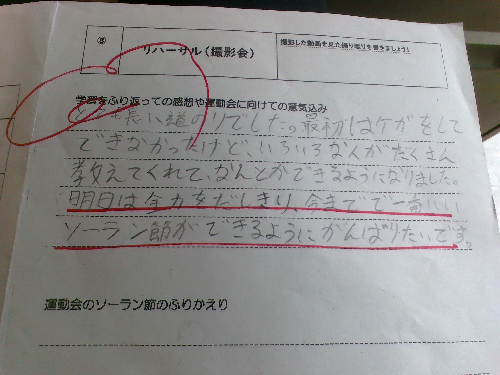 ⑧
リハーサル（撮影会）
撮影した動画を見た振り返りを書きましょう！
学習をふり返っての感想や運動会に向けての意気込み
とても長い道のりでした。最初はケガをして
できなかったけど、いろいろな人がたくさん
教えてくれて、なんとかできるようになりました。
明日は全力をだしきり、今までで一番いい
ソーラン節ができるようにがんばりたいです。
運動会のソーラン節のふりかえり